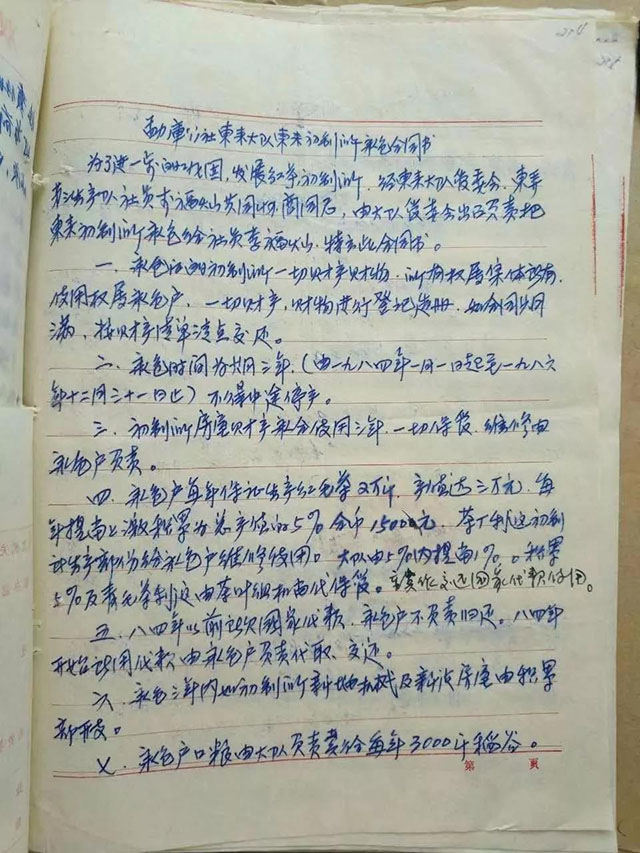 勐库公社東来大队東来初制所承包合同书
为了进一步的 发展红茶初制所，经東来大队管委会、東弄
第三生产队社员李福火山共同协商同意，由大队管委会出面负责把
東来初制所承包给社员李福火山，特立此合同书。
一、承包 初制所一切财产财物，所有权属集体所有
使用权属承包户，一切财产，财物进行登记造册，如合同期
满，按财产清单清点交还。
二、承包时间为期三年，（由一九八四年一月一日起至一九八六
年十二月三十一日止）不得中途停产。
三、初制所房屋财产承包使用三年一切保管、维修由
承包户负责。
四、承包户每年保证生产红毛茶2万斤，产值达三万元，每
年提留上激积累为总产值的5% 合币1500元， 茶厂利返初制
所生产部份给承包户维修使用。大队由5%内提留1%。积累
5%及青毛茶利返由茶叶组 代保管。主要作交还國家代款使用。
五、八四年以前所欠國家代款，承包户不负责归还。八四年
开始所用代款由承包户负责代取、交还。
六、承包三年内如初制所新增机械及新设房屋由积累
部开支。
七、承包户口粮由大队负责 给每年3000斤稻谷。
第 页
274